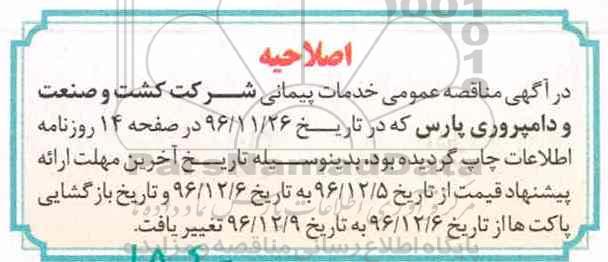 اصلاحیه
در آگهی مناقصه عمومی خدمات پیمانی شرکت کشت و صنعت
و دامپروری پارس که در تاریخ ۹۶/۱۱/۲۶ در صفحه ۱۴ روزنامه
اطلاعات چاپ گردیده بود، بدینوسیله تاریخ آخرین مهلت ارائه
پیشنهاد قیمت از تاریخ ۹۶/۱۲/۵ به تاریخ ۹۶/۱۲/۶ و تاریخ بازگشایی
پاکت ها از تاریخ ۹۶/۱۲/۶ به تاریخ ۹۶/۱۲/۹ تغییر یافت.
ParsNamadData
پایگاه اطلاع رسانی مناقصه و مزایده